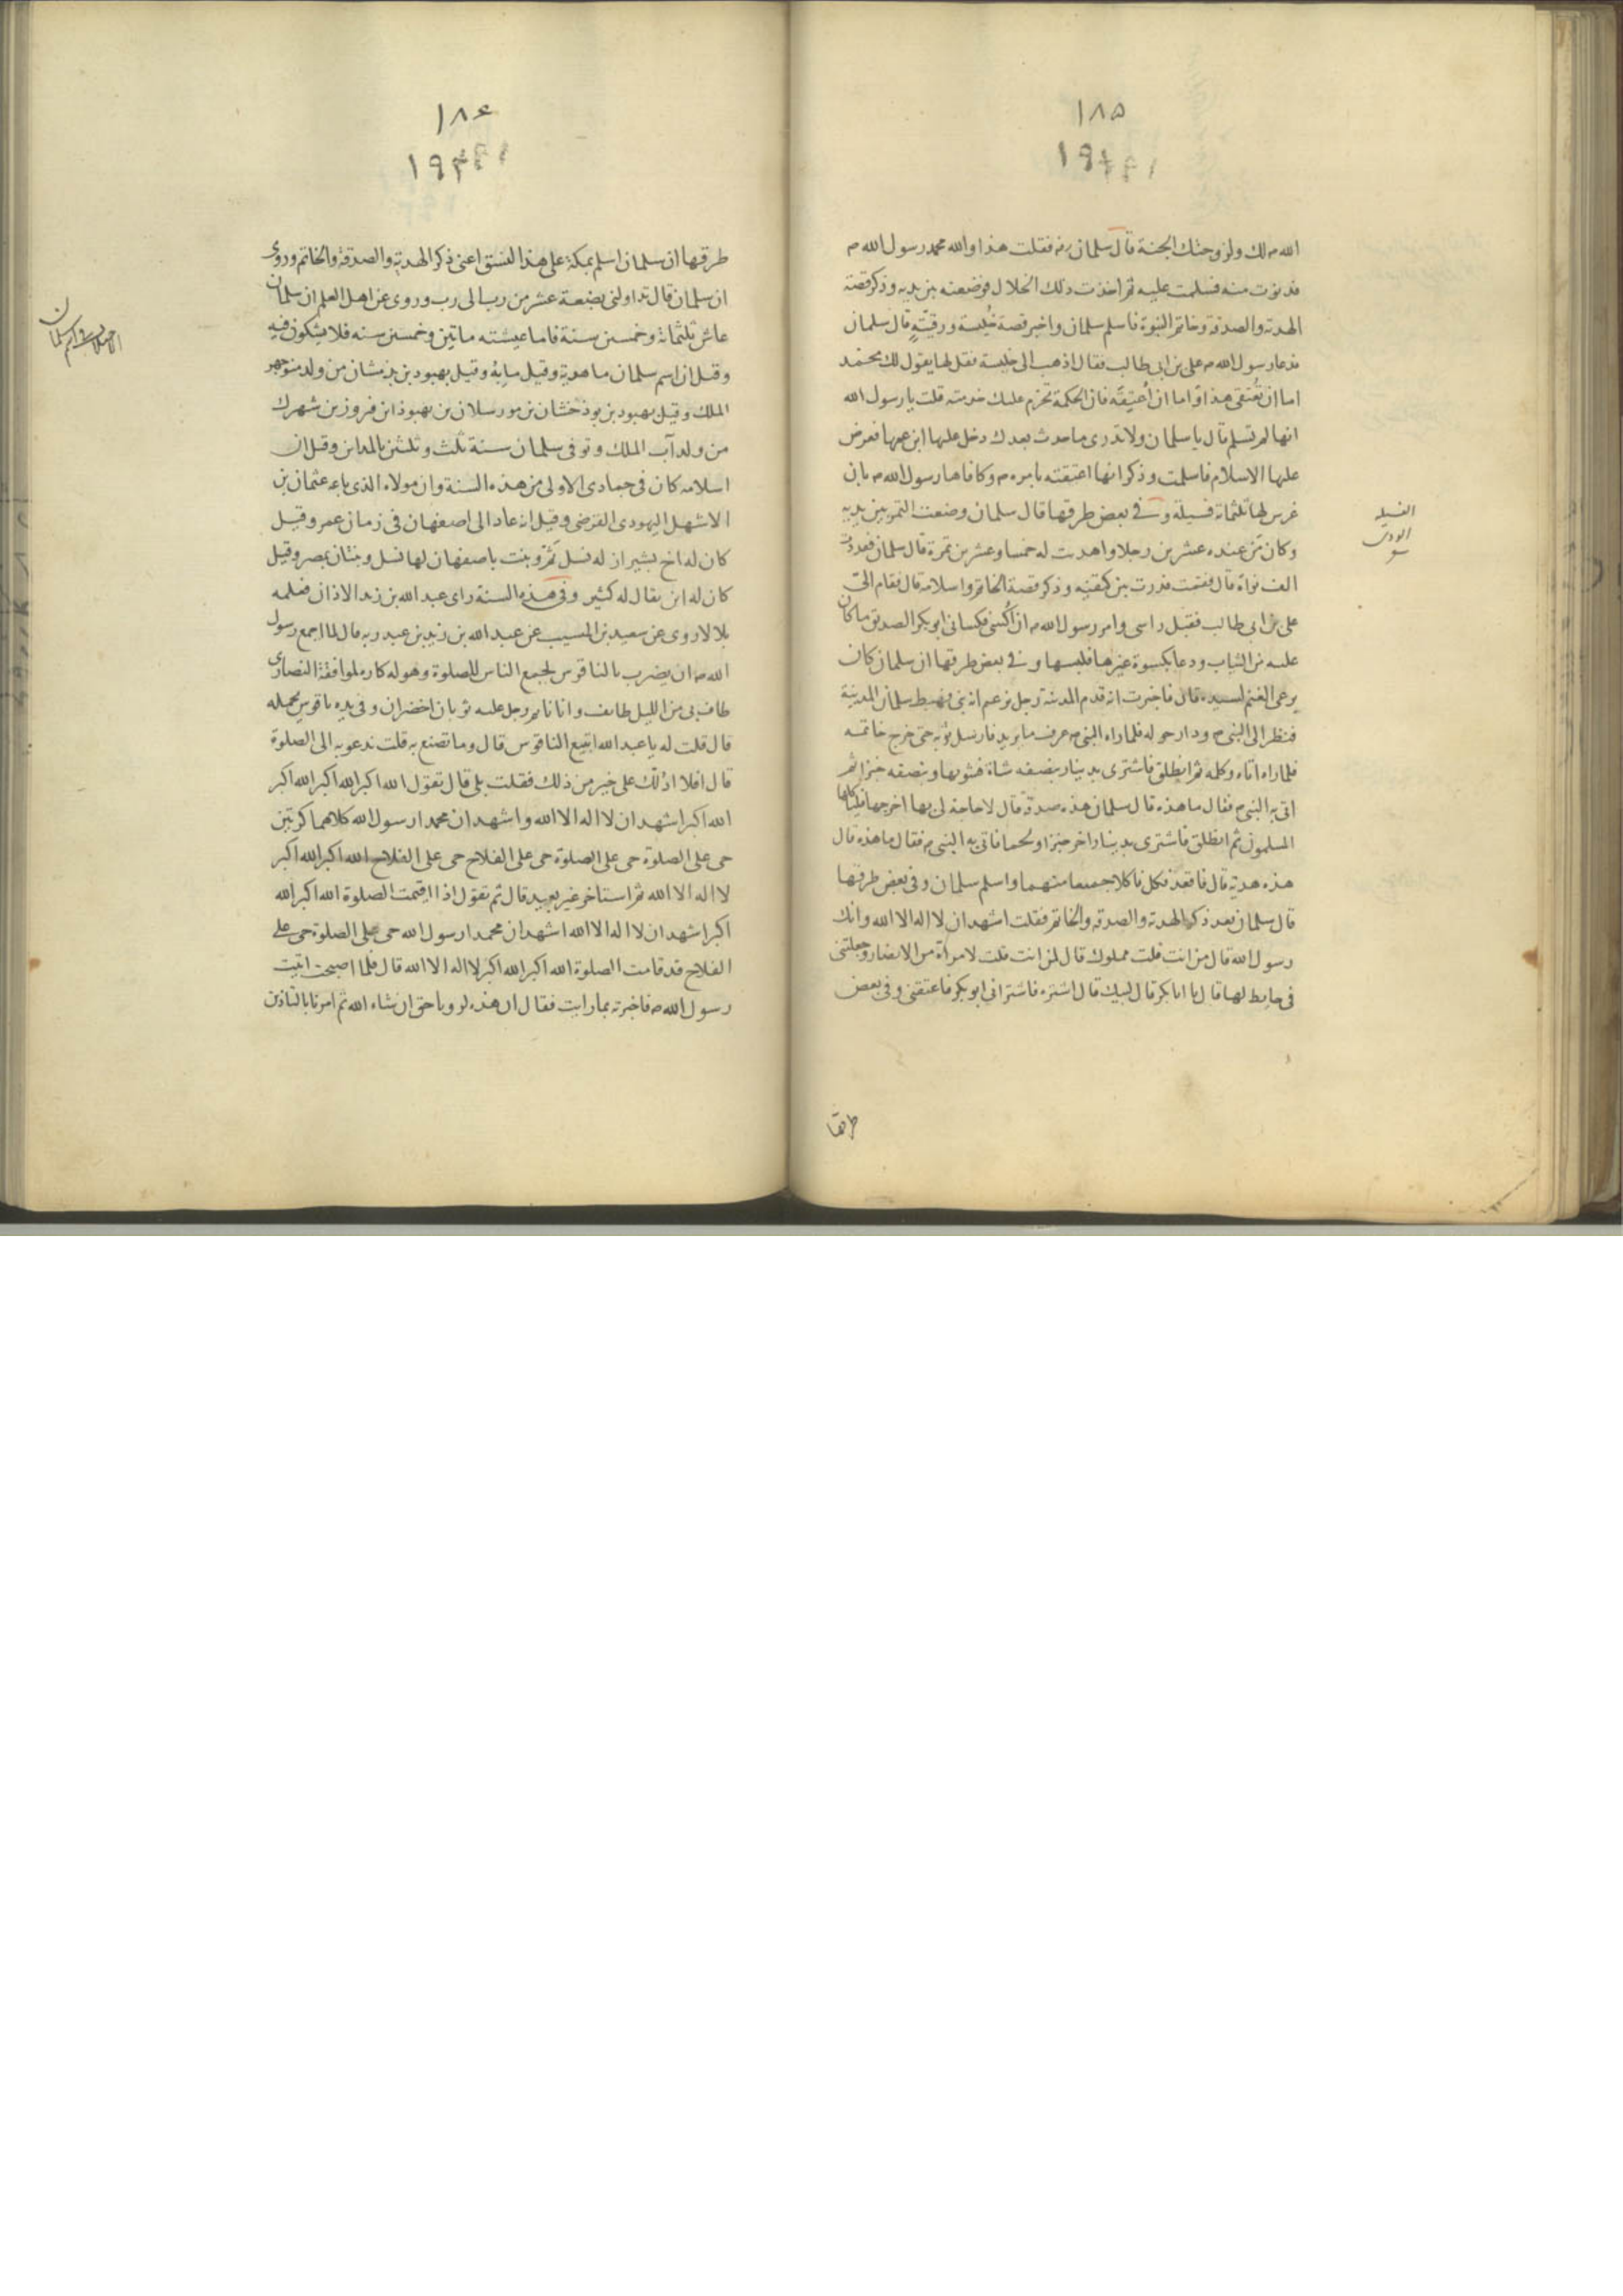 ١٨٥
١٩٤
الله م لك ولزوجتك الجنة قال سلمان رض فقلت هذا والله محمد رسول الله م
فدنوت منه فسلمت عليه ثم اخذت ذلك الخلال فوضعته بين يديه وذكر قصة
الهدية والصدقة وخاتم النبوة فاسلم سلمان واخبر قصة خُليسة ورقيته قال سلمان
فدعا رسول الله م على بن ابى طالب فقال اذهب الى خليسة فقل لها يقول لك محمد
اما ان تُعتقى هذا واما ان اُعتِقَه فان الحكمة تحرم عليك خدمته قلت يا رسول الله
انها لم تسلم قال يا سلمان ولا تدرى ما حدث بعدك دخل عليها ابن عمها فعرض
عليها الاسلام فاسلمت وذكر انها اعتقته بامره م وكافاها رسول الله م بان
غرس لها ثلثمائة فسيلة وفى بعض طرقها قال سلمان وضعت التمر بين يديه
وكان من عنده عشرين رجلا واهديت له خمسا وعشرين تمرة قال سلمان فعددت
الف نواة قال فقمت فدرت بين كتفيه وذكر قصة الخاتم واسلامه قال فقام الىّ
على بن ابى طالب فقبل راسى وامر رسول الله م ان اُكسى فكسانى ابو بكر الصديق ما كان
عليه من الثياب ودعا بكسوة غيرها فلبسها وفى بعض طرقها ان سلمان كان
يرعى الغنم لسيده قال فاخبرت انه قدم المدينة رجل يزعم انه نبى فهبط سلمان المدينة
فنظر الى النبى م ودار حوله فلما راه النبى م عرف ما يريد فارسل ثوبه حتى خرج خاتمه
فلما راه اتاه وكلمه ثم انطلق فاشترى بدينار بنصفه شاة فشويها وبنصفه خبزا ثم
اتى به النبى م فقال ما هذه قال سلمان هذه صدقة قال لا حاجة لى بها اخرجها فلياكلها
المسلمون ثم انطلق فاشترى بدينار اخر خبزا ولحما فاتى به النبى م فقال ما هذه قال
هذه هدية قال فاقعد فكل فاكلا جميعا منهما واسلم سلمان وفى بعض طرقها
قال سلمان بعد ذكر الهدية والصدقة والخاتم فقلت اشهد ان لا اله الا الله وانك
رسول الله قال من انت قلت مملوك قال لمن انت قلت لامراة من الانصار وجعلتنى
فى حايط لها قال يا ابا بكر قال لبيك قال اشتره فاشترانى ابو بكر فاعتقنى وفى بعض
طرقها
الفسيله
الودى
١٨٤
١٩٣
طرقها ان سلمان اسلم بمكة على هذا النسق اعنى ذكر الهدية والصدقة والخاتم وروى
ان سلمان قال تداولنى بضعة عشر من رب الى رب وروى عن اهل العلم ان سلمان
عاش ثلثمائة وخمسين سنة فاما عيشته ماتين وخمسين سنه فلا يشكون فيه
وقيل ان اسم سلمان ماهديه وقيل مايه وقيل بهبود بن بدخشان من ولد منوجهر
الملك وقيل بهبود بن بوذخشان بن مورسلان بن بهبوذ ابن فروز بن شهرك
من ولد آب الملك وتوفى سلمان سنة ثلث وثلثين بالمداين وقيل ان
اسلامه كان فى جمادى الاولى من هذه السنة وان مولاه الذى باعه عثمان بن
الاشهل اليهودى القرضى وقيل انه عاد الى اصفهان فى زمان عمر وقيل
كان له اخ بشيراز له نسل ثَمَّ وبنت باصفهان لها نسل وبنتان بمصر وقيل
كان له ابن يقال له كثير وفى هذه السنة راى عبد الله بن زيد الاذان فعلمه
بلالا روى عن سعيد بن المسيب عن عبد الله بن زيد بن عبد ربه قال لما اجمع رسول
الله م ان يضرب بالناقوس لجمع الناس للصلوة وهو له كاره لموافقة النصارى
طاف بى من الليل طايف وانا نايم رجل عليه ثوبان اخضران وفى يده ناقوس يحمله
قال قلت له يا عبد الله اتبيع الناقوس قال وما تصنع به قلت ندعو به الى الصلوة
قال افلا ادلّك على خير من ذلك فقلت بلى قال تقول الله اكبر الله اكبر الله اكبر
الله اكبر اشهد ان لا اله الا الله واشهد ان محمدا رسول الله كلاهما كرتين
حى على الصلوة حى على الصلوة حى على الفلاح حى على الفلاح الله اكبر الله اكبر
لا اله الا الله ثم استاخر غير بعيد قال ثم تقول اذا اقمت الصلوة الله اكبر الله
اكبر اشهد ان لا اله الا الله اشهد ان محمدا رسول الله حى على الصلوة حى على
الفلاح قد قامت الصلوة الله اكبر الله اكبر لا اله الا الله قال فلما اصبحت اتيت
رسول الله م فاخبرته بما رايت فقال ان هذه لرويا حق ان شاء الله ثم امرنا بالتاذين